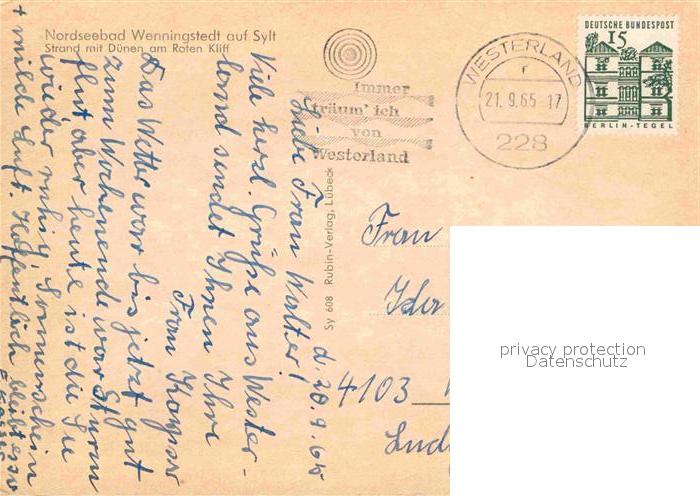 Nordseebad Wenningstedt auf Sylt
Strand mit Dünen am Roten Kliff
Immer
träum' ich
von
Westerland
WESTERLAND
r
21.9.65-17
228
DEUTSCHE BUNDESPOST
15
BERLIN-TEGEL
Sy 608 Rubin-Verlag, Lübeck
d. 20.9.65
Liebe Frau Walter!
Viele herzl. Grüße aus Wester-
land sendet Ihnen Ihre
Frau Kayser
Das Wetter war bis jetzt gut
zum Wochenende war Sturm
flut aber heute ist die See
wieder ruhig, Sonnenschein
+ milde Luft. Hoffentlich bleibt es so
Frau
Ida
4103
privacy protection
Datenschutz